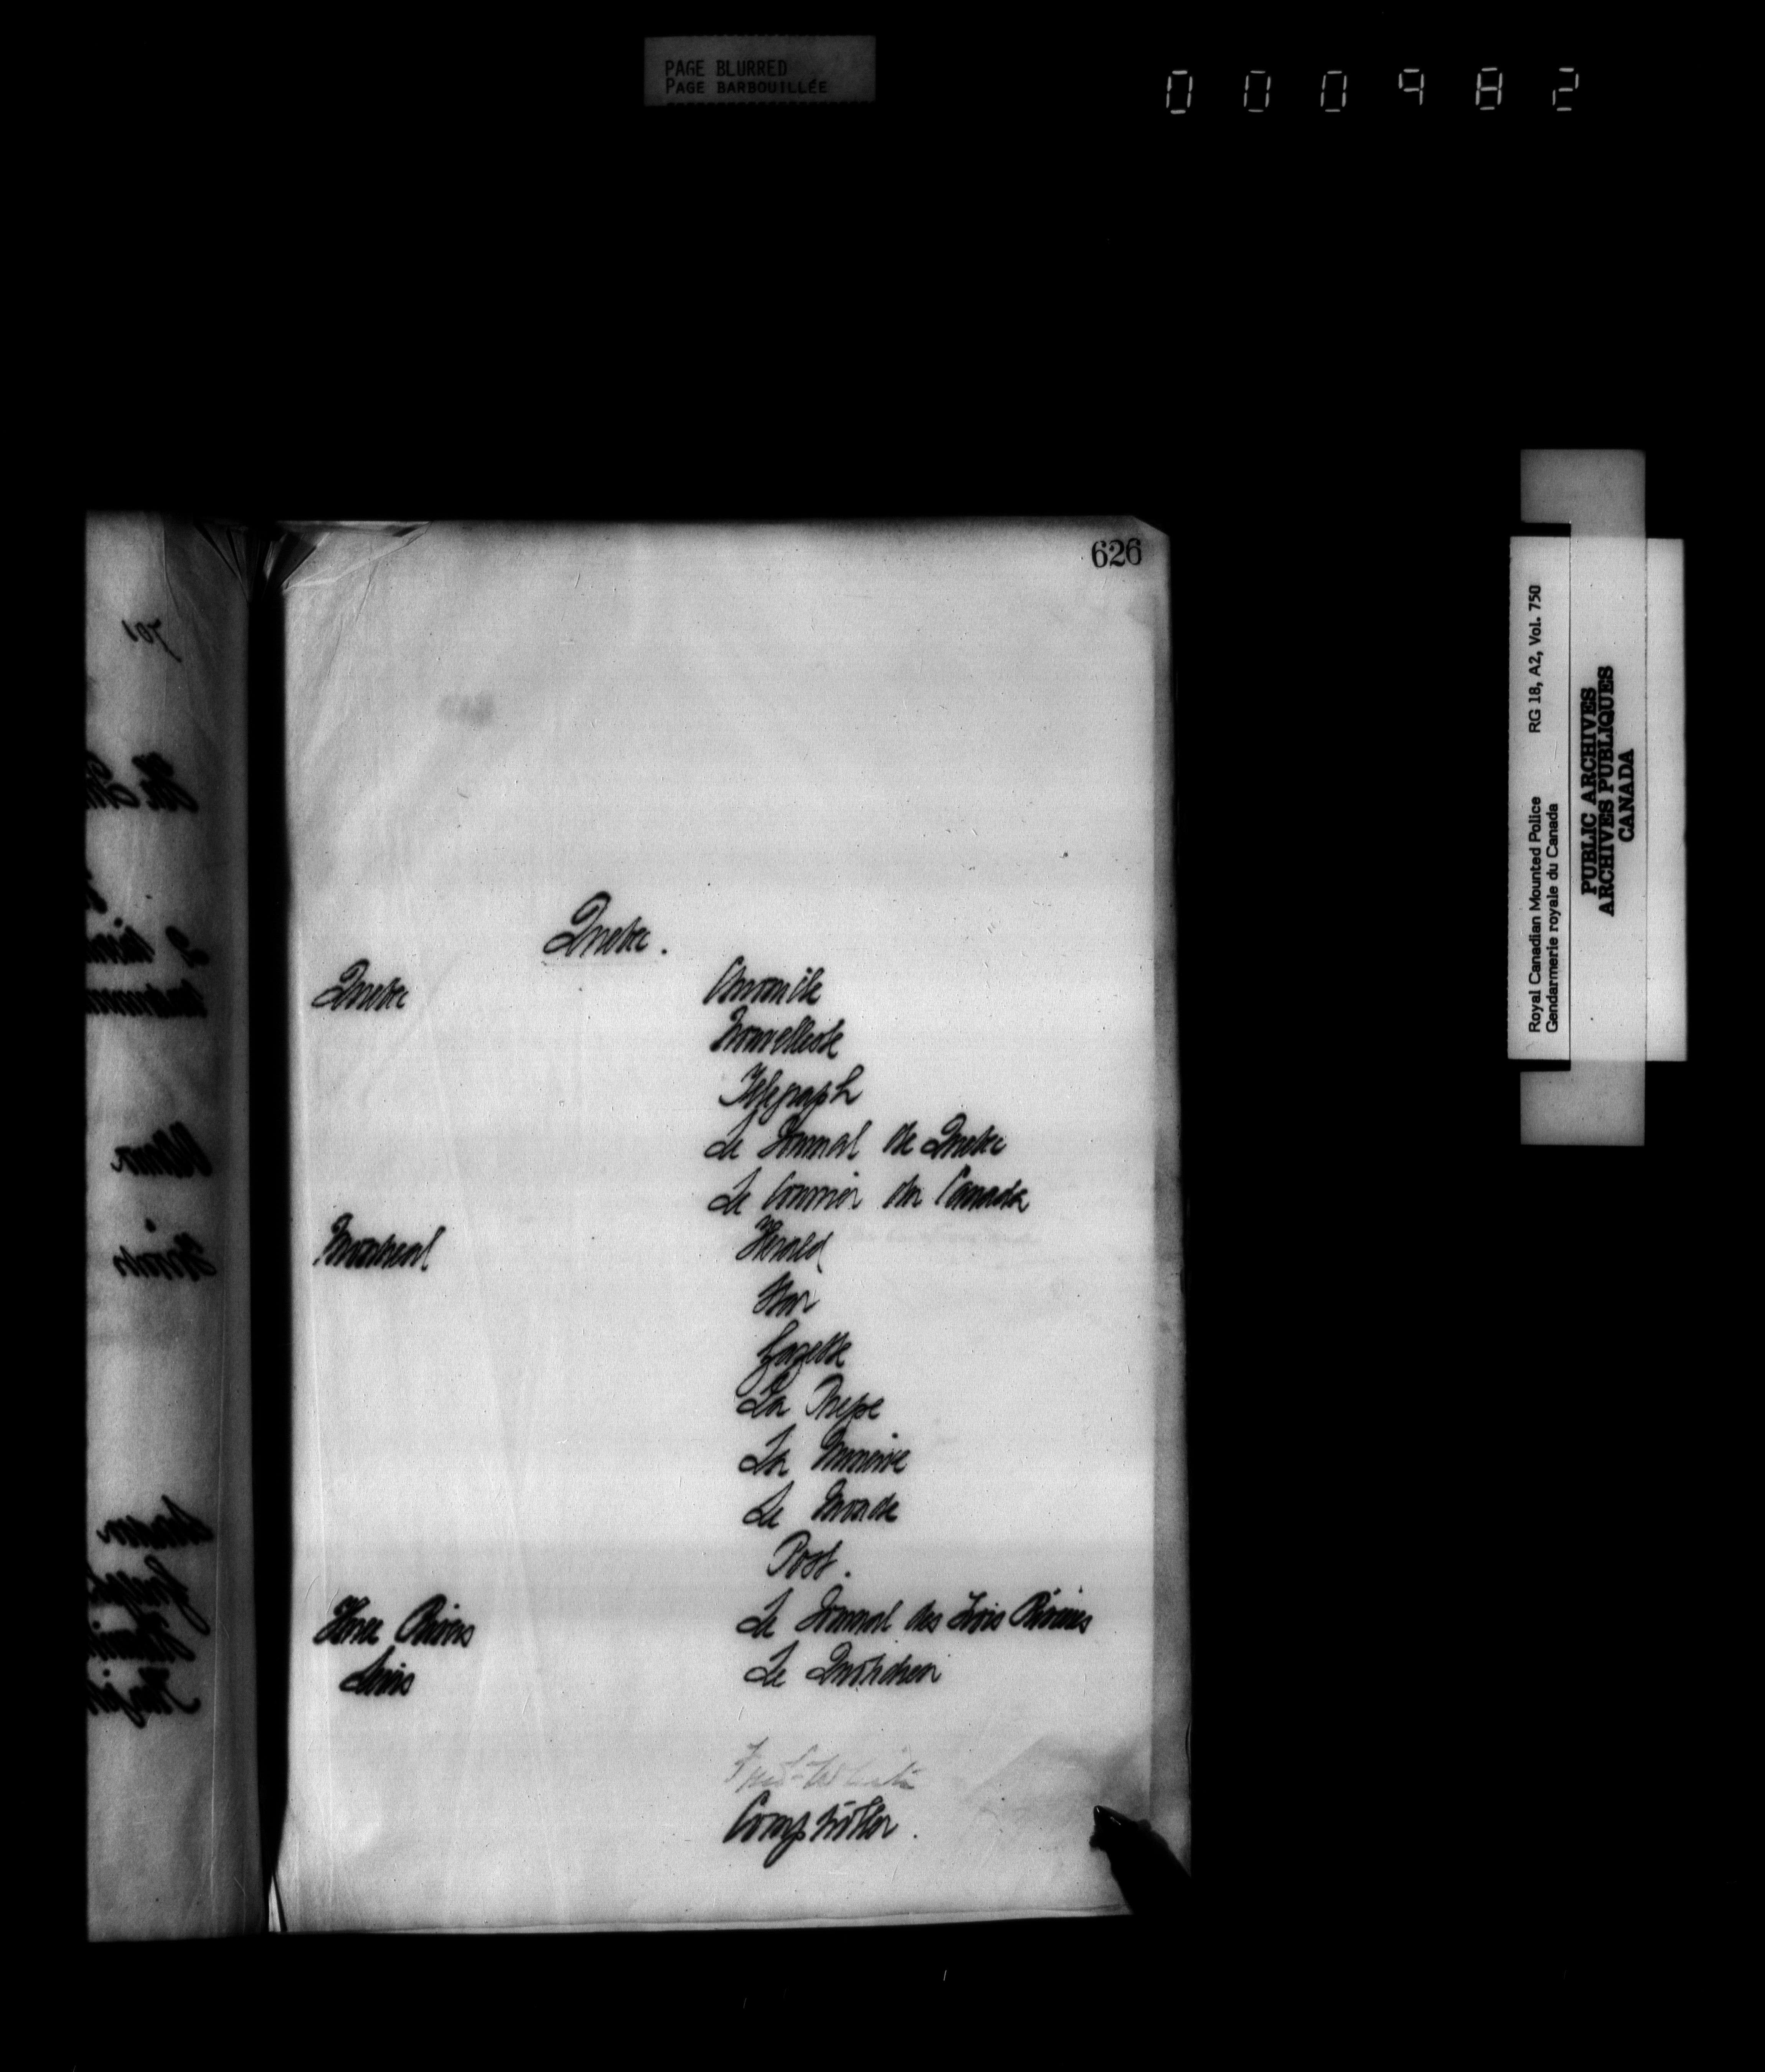 PAGE BLURRED
PAGE BARBOUILLÉE
000982
626
701
Quebec.
Quebec Chronicle
Nouvelliste
Telegraph
Le Journal de Quebec
Le Courrier du Canada
Montreal Herald
Star
Gazette
La Presse
La Minerve
Le Monde
Post.
Three Rivers Le Journal des Trois Rivieres
Levis Le Quotidien
Fred White
Comptroller.
Royal Canadian Mounted Police RG 18, A2, Vol. 750
Gendarmerie royale du Canada
PUBLIC ARCHIVES
ARCHIVES PUBLIQUES
CANADA